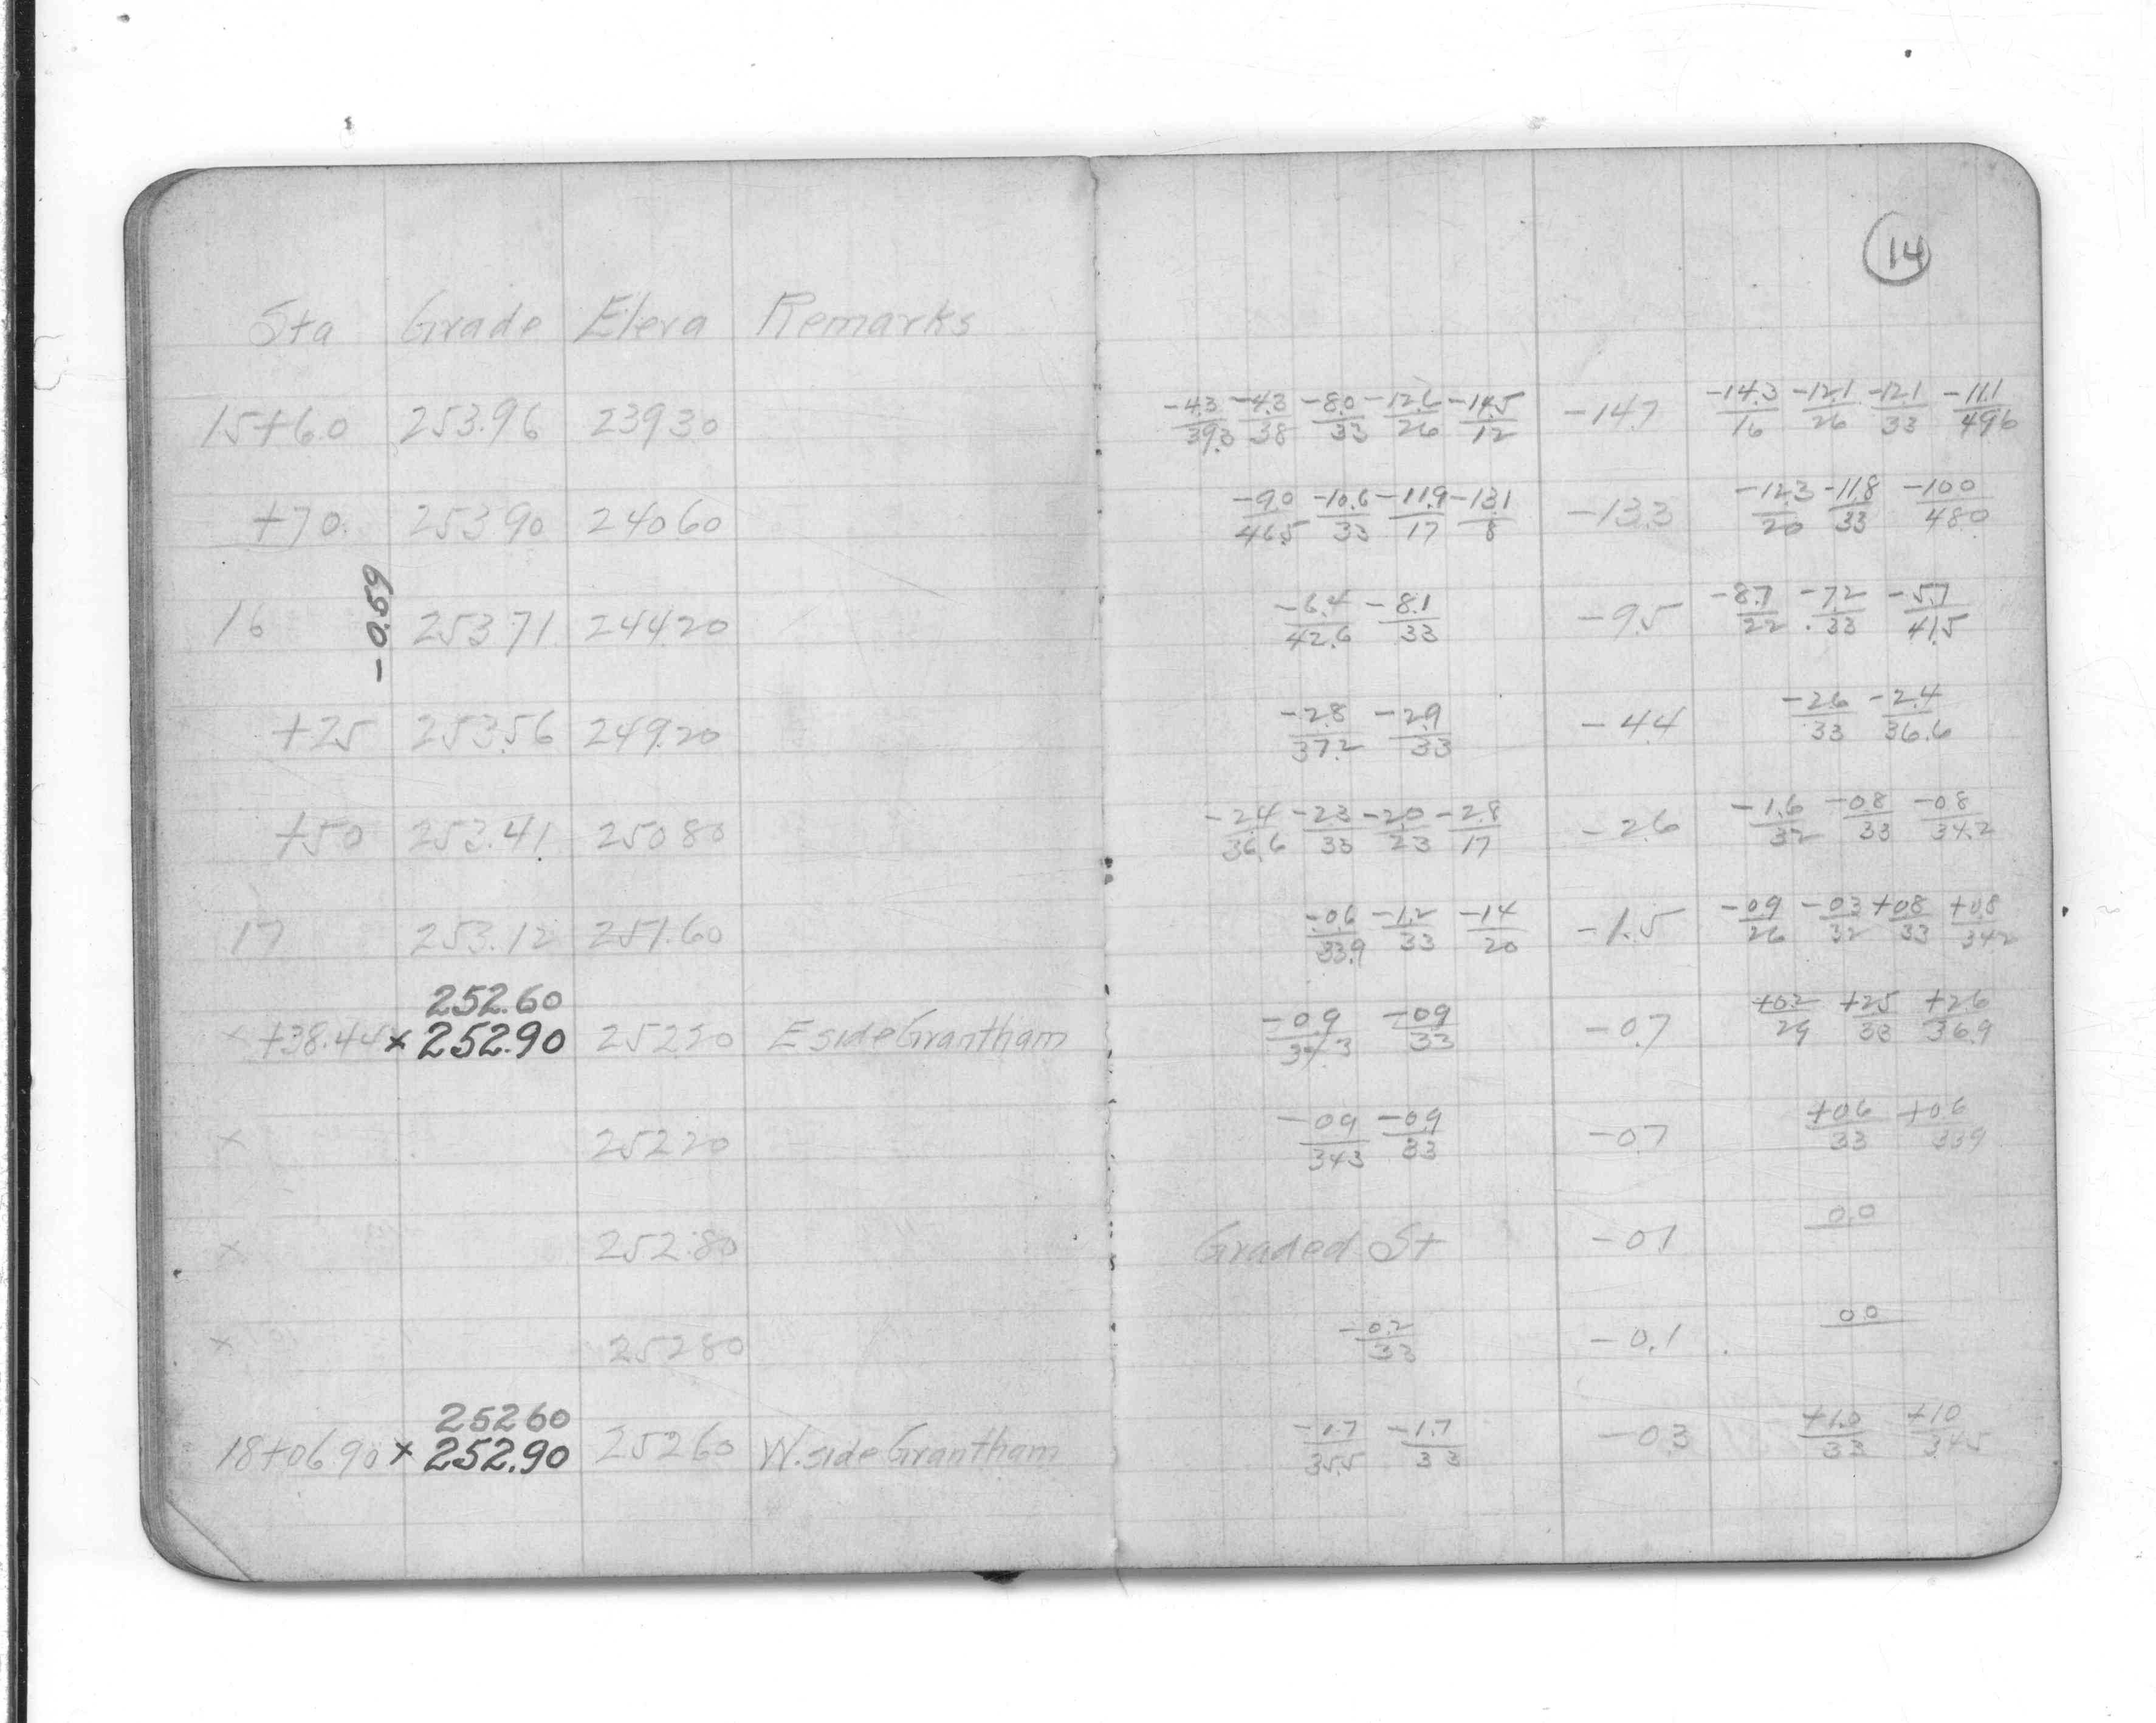 14
Sta Grade Eleva Remarks
15+60 253.96 239.30 -4.3/39.3 -4.3/38 -8.0/33 -12.6/26 -14.5/12 -14.7 -14.3/16 -12.1/26 -12.1/33 -11.1/49.6
+70 253.90 240.60 -9.0/46.5 -10.6/33 -11.9/17 -13.1/8 -13.3 -12.3/20 -11.8/33 -10.0/48.0
-0.59
16 253.71 244.20 -6.4/42.6 -8.1/33 -9.5 -8.7/22 -7.2/33 -5.7/41.5
+25 253.56 249.20 -2.8/37.2 -2.9/33 -4.4 -2.6/33 -2.4/36.6
+50 253.41 250.80 -2.4/36.6 -2.3/33 -2.0/23 -2.8/17 -2.6 -1.6/32 -0.8/33 -0.8/34.2
17 253.12 251.60 -0.6/33.9 -1.2/33 -1.4/20 -1.5 -0.9/26 -0.3/32 +0.8/33 +0.8/34.2
252.60
x +38.45 x 252.90 252.20 E side Grantham -0.9/34.3 -0.9/33 -0.7 +0.2/29 +2.5/33 +2.6/36.9
x 252.20 -0.9/34.3 -0.9/33 -0.7 +0.6/33 +0.6/33.9
x 252.80 Graded St -0.1 0.0
x 252.80 -0.2/33 -0.1 0.0
252.60
18+06.90 x 252.90 252.60 W. side Grantham -1.7/35.5 -1.7/33 -0.3 +1.0/33 +1.0/34.5